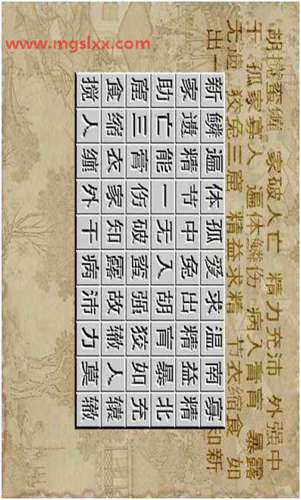 www.mgslxx.com
胡搅蛮缠 家破人亡 精力充沛 外强中
干 孤家寡人 遍体鳞伤 病入膏肓 暴露
无遗 狡兔三窟 精益求精 节衣缩食 如
出一 知新
新鳞遍体孤爱求温南寡
家遗精节中兔出精益精
助亡能一无入胡肓暴北
窟三膏伤破蛮强狡如充
食缩衣家知露故辙人辕
搅人缠外干病沛力莫辙